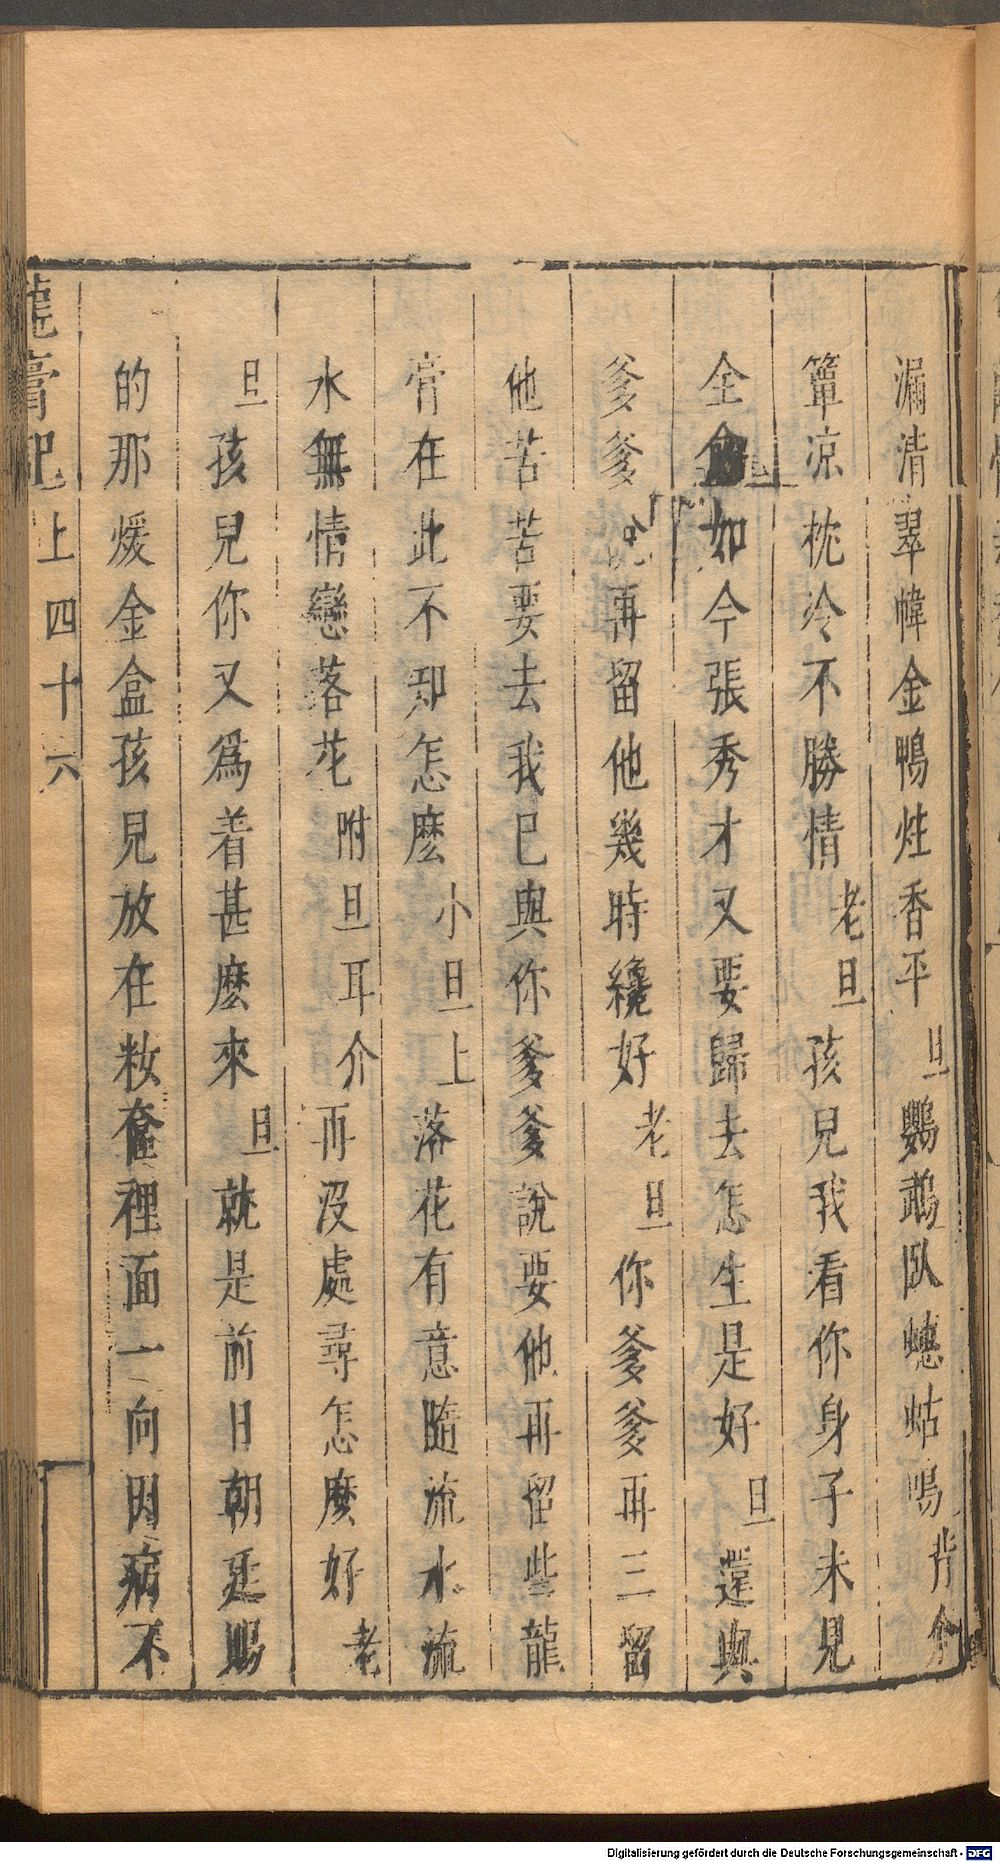 漏清翠幃金鴨炷香平旦鸚鵡臥蟪蛄鳴背介
簟凉枕冷不勝情老旦孩兒我看你身子未見
全愈如今張秀才又要歸去怎生是好旦還與
爹爹說再留他幾時纔好老旦你爹爹再三留
他苦苦要去我已與你爹爹說要他再留些龍
膏在此不知怎麽小旦上落花有意隨流水流
水無情戀落花附旦耳介再没處尋怎麽好老
旦孩兒你又爲着甚麽來旦就是前日朝廷賜
的那煖金盒孩兒放在粧奩裡面一向因病不
龍膏記 上 四十六
Digitalisierung gefördert durch die Deutsche Forschungsgemeinschaft - DFG